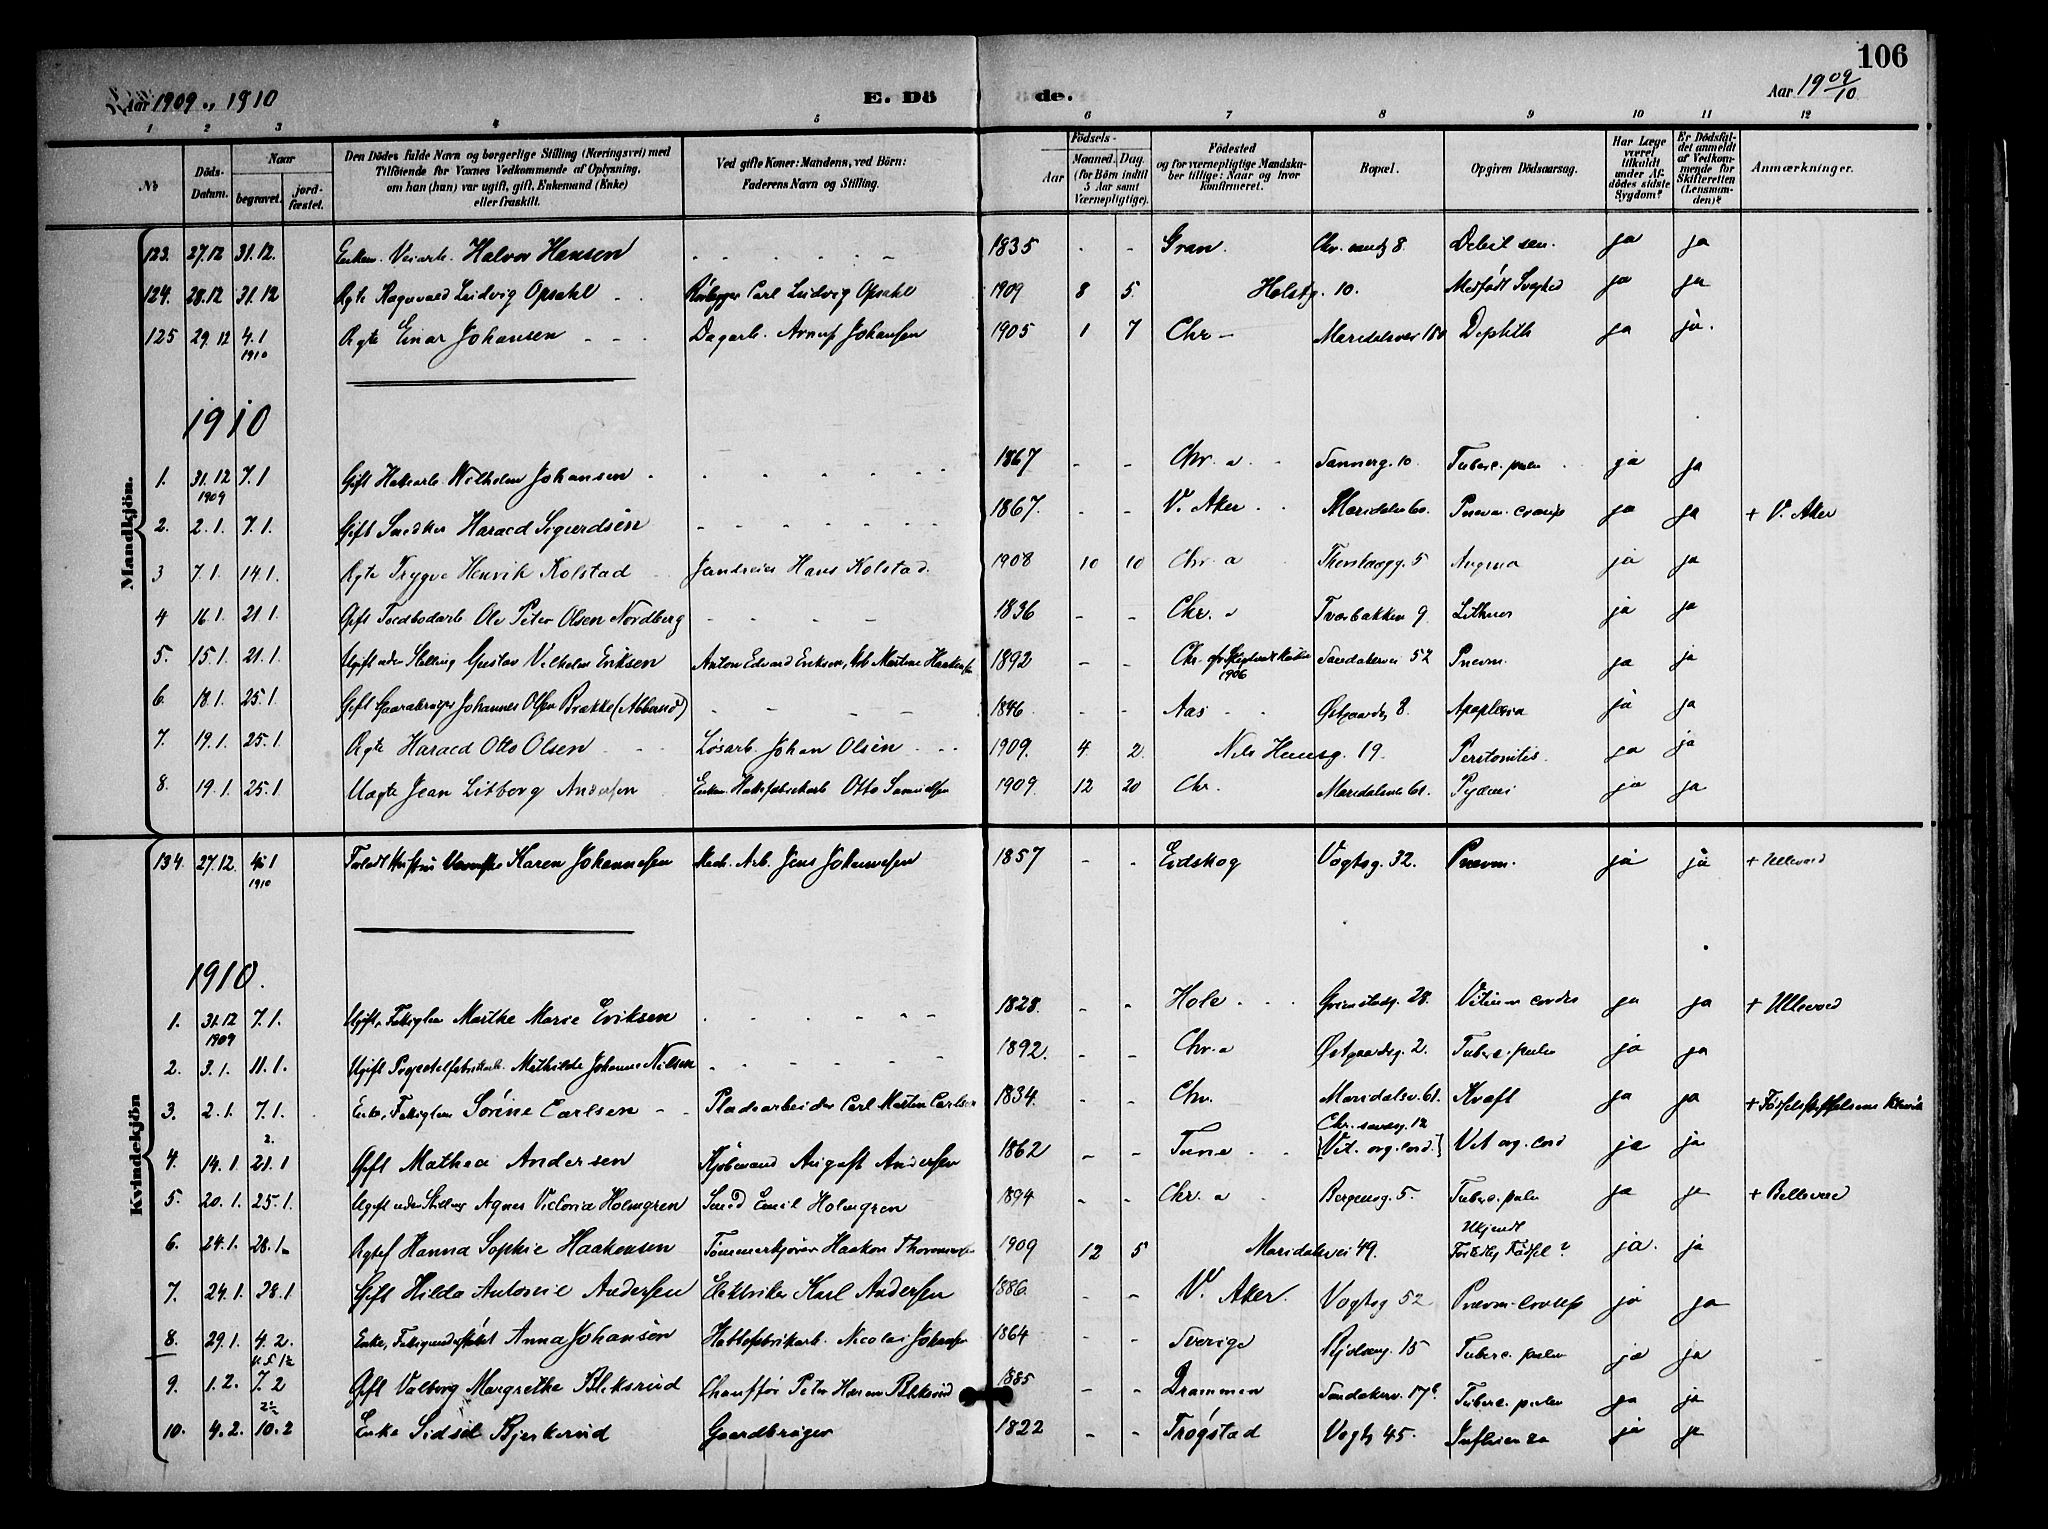 106
Aar 1909 og 1910
E. Dö
de.
Aar 1909/10
1 2 3 4 5 6 7 8 9 10 11 12
No
Döds-Datum.
Naar
begravet.
jord-fæstet.
Den Dödes fulde Navn og borgerlige Stilling (Næringsvei) med
Tilföiende for Voxnes Vedkommende af Oplysning,
om han (hun) var ugift, gift, Enkemand (Enke)
eller fraskilt.
Ved gifte Koner: Mandens, ved Börn:
Faderens Navn og Stilling.
Födsels-
Aar
Maaned. Dag.
(for Börn indtil
5 Aar samt
Værnepligtige).
Födested
og for værnepligtige Mandska-
ber tillige: Naar og hvor
konfirmeret.
Bopæl.
Opgiven Dödsaarsag.
Har Læge
været
tilkaldt
under Af-
dödes sidste
Sygdom?
Er Dödsfal-
det anmeldt
af Vedkom-
mende for
Skifteretten
(Lensman-
den)?
Anmærkninger.
Mandkjön.
123. 27.12 31.12. Enkem. Veiarb. Halvor Hansen 1835 - - Gran. Chr. sandg 8. Debil. sen. ja ja
124. 28.12 31.12 Ægte Ragnvald Ludvig Opsahl Rørlægger Carl Ludvig Opsahl 1909 8 5. Holstg. 10. Medfødt Svaghed ja ja
125 29.12 4.1 1910 Ægte Einar Johansen Dagarb. Arnt Johansen 1905 1 7 Chr - Maridalsvei 150 Diphth ja ja.
1910
1. 31.12 1909 7.1 Gift Wilhelm Johansen 1867 - - Chr. a Sannerg. 10 Tuberc. pulm ja ja
2. 2.1. 7.1. Gift Snedker Harald Sigurdsen 1867. - - V. Aker Maridalsv 60. Pnevm. croup ja ja + V. Aker
3 7.1. 14.1. Ægte Trygve Henrik Kolstad Hans Kolstad. 1908 10 10 Chr. a 5 Angina ja ja
4 16.1. 21.1. Gift Ole Peter Olsen Nordberg 1836 - - Chr. a Tverbakken 9 ja ja
5. 15.1. 21.1. Ugift uden Stilling Gustav Vilhelm Eriksen Anton Edvard Eriksen, 1892 - - Chr. 1906 Sandakervei 52 Pnevm. ja ja
6. 18.1. 25.1. Gift Gaardbruger Johannes Olsen Brække 1846 - - Aas Østgaardsg 8. Apoplexia ja ja
7. 19.1. 25.1. Ægte Harald Otto Olsen Løsarb. Johan Olsen 1909. 4 2. Nils Huusg. 19. Peritonitis. ja ja
8. 19.1. 25.1 Uægte Jean Litborg Andersen Enkem. Otto Samuelsen 1909. 12 20 Chr. Maridalsv 61. ja ja
Kvindekjön
134. 27.12. 4.1 1910 Hustru Karen Johannesen Mech. Arb. Jens Johannesen 1857 - - Eidskog Vogtsg. 32. Pnevm. ja ja + Ullevaal
1910.
1. 31.12 1909 7.1. Ugift, Fattiglem Marthe Marie Eriksen 1828. - - Hole Grimstadg. 28. Vitium cordis ja ja + Ullevaal
2. 3.1. 11.1. Ugift Mathilde Johanne Nilsen 1892. - - Chr. a Østgaardsg. 2. Tuberc. pulm ja ja
3. 2.1. 7.1. Enke, Fattiglem Sörine Carlsen Pladsarbeider Carl Martin Carlsen 1834. - - Chr. Maridalsv. 61. Kræft ja ja + Fødselsstiftelsens
4. 14.1. 21.1 Gift Mathea Andersen Kjøbmand August Andersen 1862 - - Tune Chr. sandsg. 12 [Vit. org. cord.] Vit org. cord ja ja
5. 20.1. 25.1. Ugift uden Stilling Agnes Victoria Holmgren Smed Emil Holmgren 1894 - - Chr. a Bergensg. 5. Tuberc. pulm ja ja +
6. 24.1. 28.1. Ægtef Hanna Sophie Haakensen Tømmerkjører Haakon 1909 12 5 Maridalsvei 49. Ukjendt Fødsel? ja. ja
7. 24.1. 28.1 Gift Hilda Antonie Andersen Elektriker Karl Andersen 1886. - - V. Aker. Vogtsg 52 Pnevm. croup ja ja
8. 29.1. 4.2. Enke, Fattigunderstøttet Anna Johansen Hattefabrikarb. Nicolai Johansen 1864 - - Sverige 15 Tuberc. pulm ja ja
9. 1.2. 7.2 Gift Valborg Margrethe Bleksrud Chauffør Peter Bleksrud 1885 - - Drammen Sandakerv. 17 Tuberc. pulm ja ja
10. 4.2. 10.2 Enke Sidsel Bjerkerud Gaardbruger 1822 - - Trøgstad Vogtg 45. Influenza ja ja